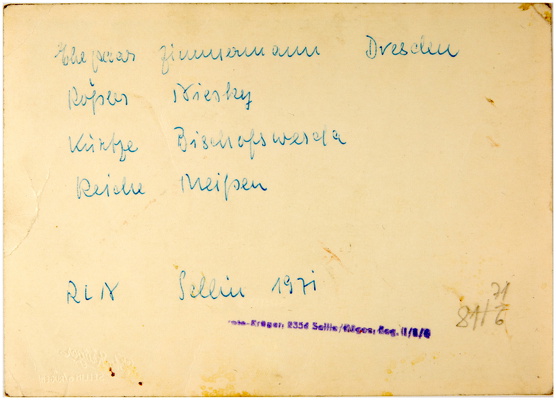 Ehepaar Zimmermann Dresden
Niesky
Kürtze Bischofswerda
Reiche Meißen
Sellin 1971
-Krüger, 2356 Sellin/Rügen, Reg. II/8/6
71